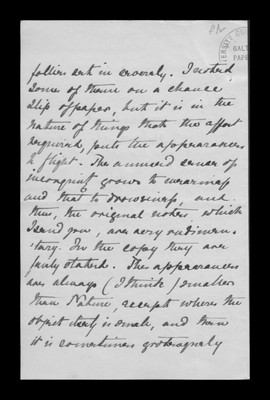 follies set in severely. I noted
some of them on a chance
slip of paper, but it is in the
nature of things that the effort
required, puts the appearances
to flight. The amused sense of
incongruity grows to weariness
and that to drowsiness, and
thus, the original notes, which
I send you, are very rudimen-
tary. In the copy they are
fairly stated. The appearances
are always (I think) smaller
than Nature, except where the
object itself is small, and then
it is sometimes grotesquely
GALT
PAPE